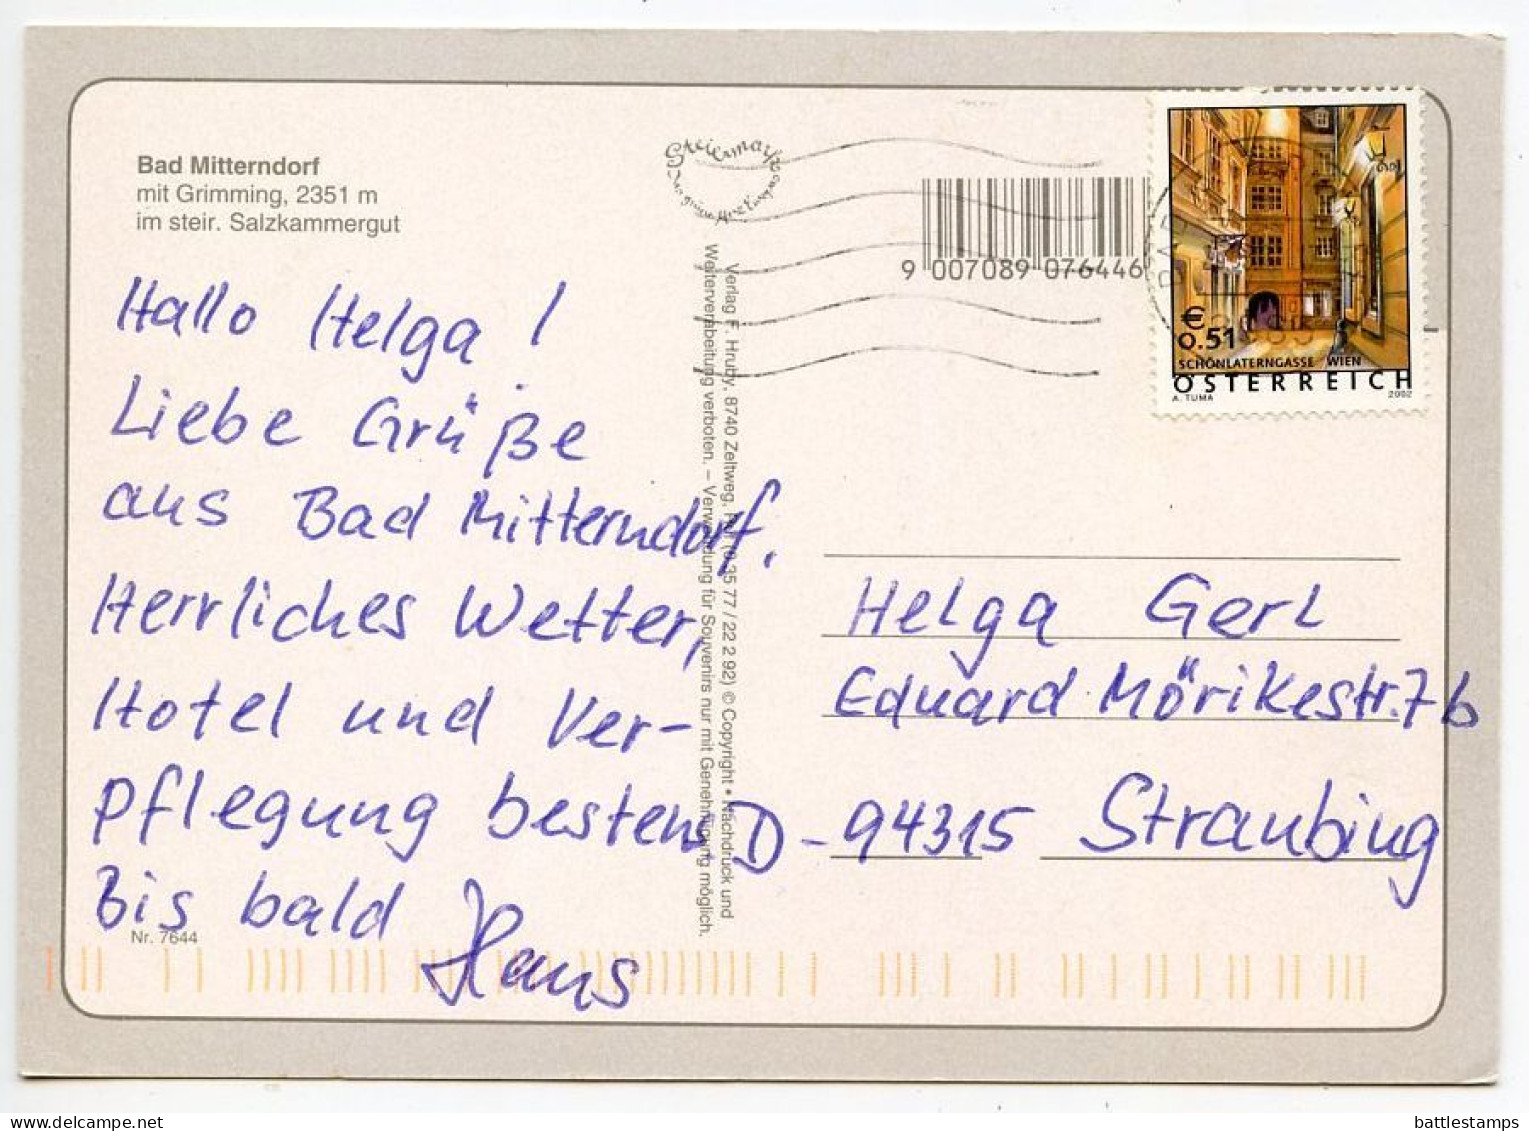 Bad Mitterndorf
mit Grimming, 2351 m
im steir. Salzkammergut
Hallo Helga !
Liebe Grüße
aus Bad Mitterndorf.
Herrliches Wetter,
Hotel und Ver-
pflegung bestens
Bis bald
Hans
Nr. 7644
Steiermark
Verlag F. Hruby, 8740 Zeltweg, (0 35 77 / 22 2 92) © Copyright • Nachdruck und
Weiterverabeitung verboten. – Verwendung für Souvenirs nur mit Genehmigung möglich.
9 007089 076446
€
0.51
SCHÖNLATERNGASSE WIEN
ÖSTERREICH
A. TUMA 2002
Helga Gerl
Eduard Mörikestr. 7b
D - 94315 Straubing
battlestamps
www.delcampe.net